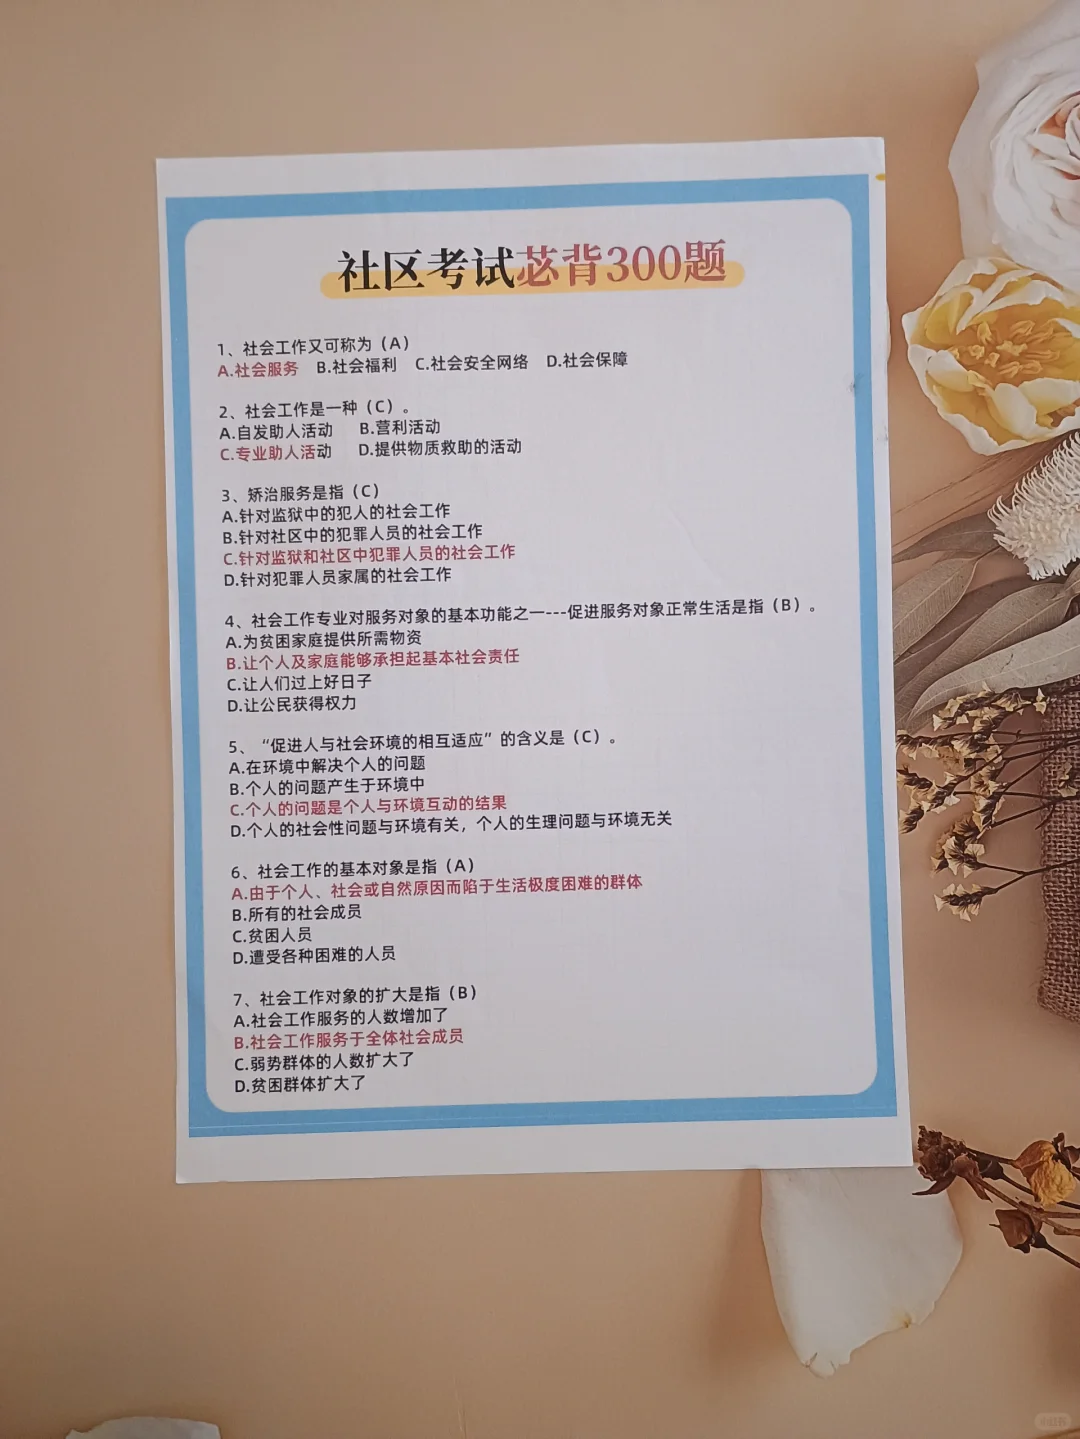 社区考试苾背300题
1、社会工作又可称为（A）
A.社会服务 B.社会福利 C.社会安全网络 D.社会保障
2、社会工作是一种（C）。
A.自发助人活动 B.营利活动
C.专业助人活动 D.提供物质救助的活动
3、矫治服务是指（C）
A.针对监狱中的犯人的社会工作
B.针对社区中的犯罪人员的社会工作
C.针对监狱和社区中犯罪人员的社会工作
D.针对犯罪人员家属的社会工作
4、社会工作专业对服务对象的基本功能之一---促进服务对象正常生活是指（B）。
A.为贫困家庭提供所需物资
B.让个人及家庭能够承担起基本社会责任
C.让人们过上好日子
D.让公民获得权力
5、“促进人与社会环境的相互适应”的含义是（C）。
A.在环境中解决个人的问题
B.个人的问题产生于环境中
C.个人的问题是个人与环境互动的结果
D.个人的社会性问题与环境有关，个人的生理问题与环境无关
6、社会工作的基本对象是指（A）
A.由于个人、社会或自然原因而陷于生活极度困难的群体
B.所有的社会成员
C.贫困人员
D.遭受各种困难的人员
7、社会工作对象的扩大是指（B）
A.社会工作服务的人数增加了
B.社会工作服务于全体社会成员
C.弱势群体的人数扩大了
D.贫困群体扩大了
小红书